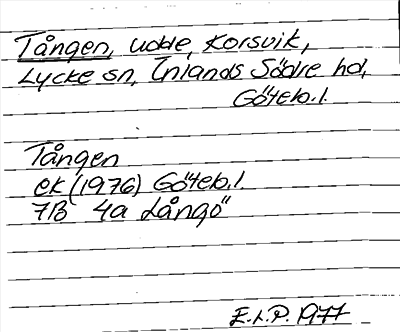 Tången, udde, Korsvik,
Lycke sn, Inlands Södre hd,
Göteb. l.
Tången
ek (1976) Göteb. l.
7B 4a Långö
E.L.P. 1977